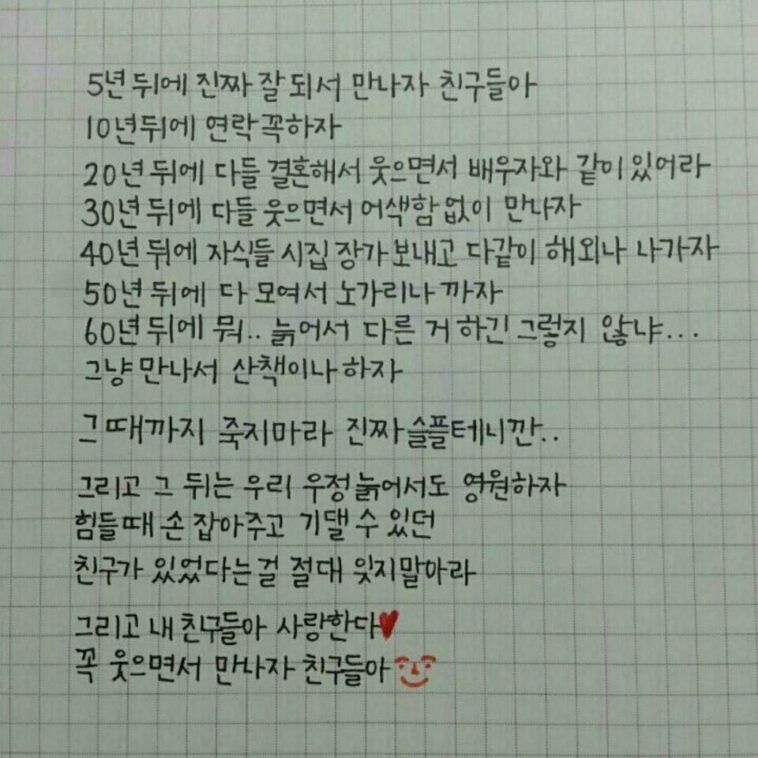 5년 뒤에 진짜 잘 되서 만나자 친구들아
10년뒤에 연락 꼭하자
20년 뒤에 다들 결혼해서 웃으면서 배우자와 같이 있어라
30년 뒤에 다들 웃으면서 어색함 없이 만나자
40년 뒤에 자식들 시집 장가 보내고 다같이 해외나 나가자
50년 뒤에 다 모여서 노가리나 까자
60년 뒤에 뭐.. 늙어서 다른 거 하긴 그렇지 않냐...
그냥 만나서 산책이나 하자
그때까지 죽지마라 진짜 슬플테니깐..
그리고 그 뒤는 우리 우정 늙어서도 영원하자
힘들때 손 잡아주고 기댈 수 있던
친구가 있었다는걸 절대 잊지말아라
그리고 내 친구들아 사랑한다♥
꼭 웃으면서 만나자 친구들아